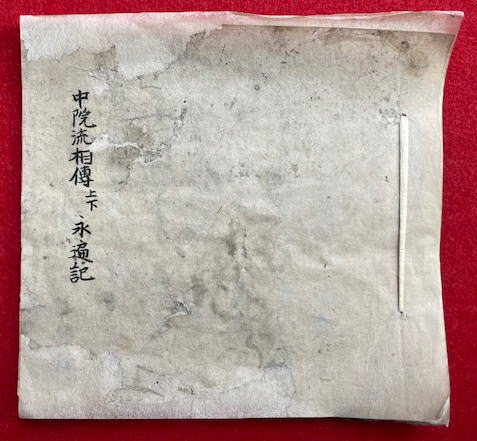 中院流相傳上下 永遍記